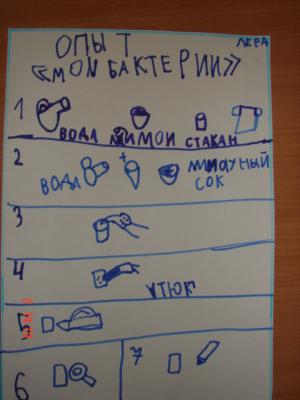 ЛЕРА
ОПЫТ
«МОИ БАКТЕРИИ»
1
ВОДА ЛИМОН СТАКАН
2
ВОДА + СОК
3
4
УТЮК
5
6
7